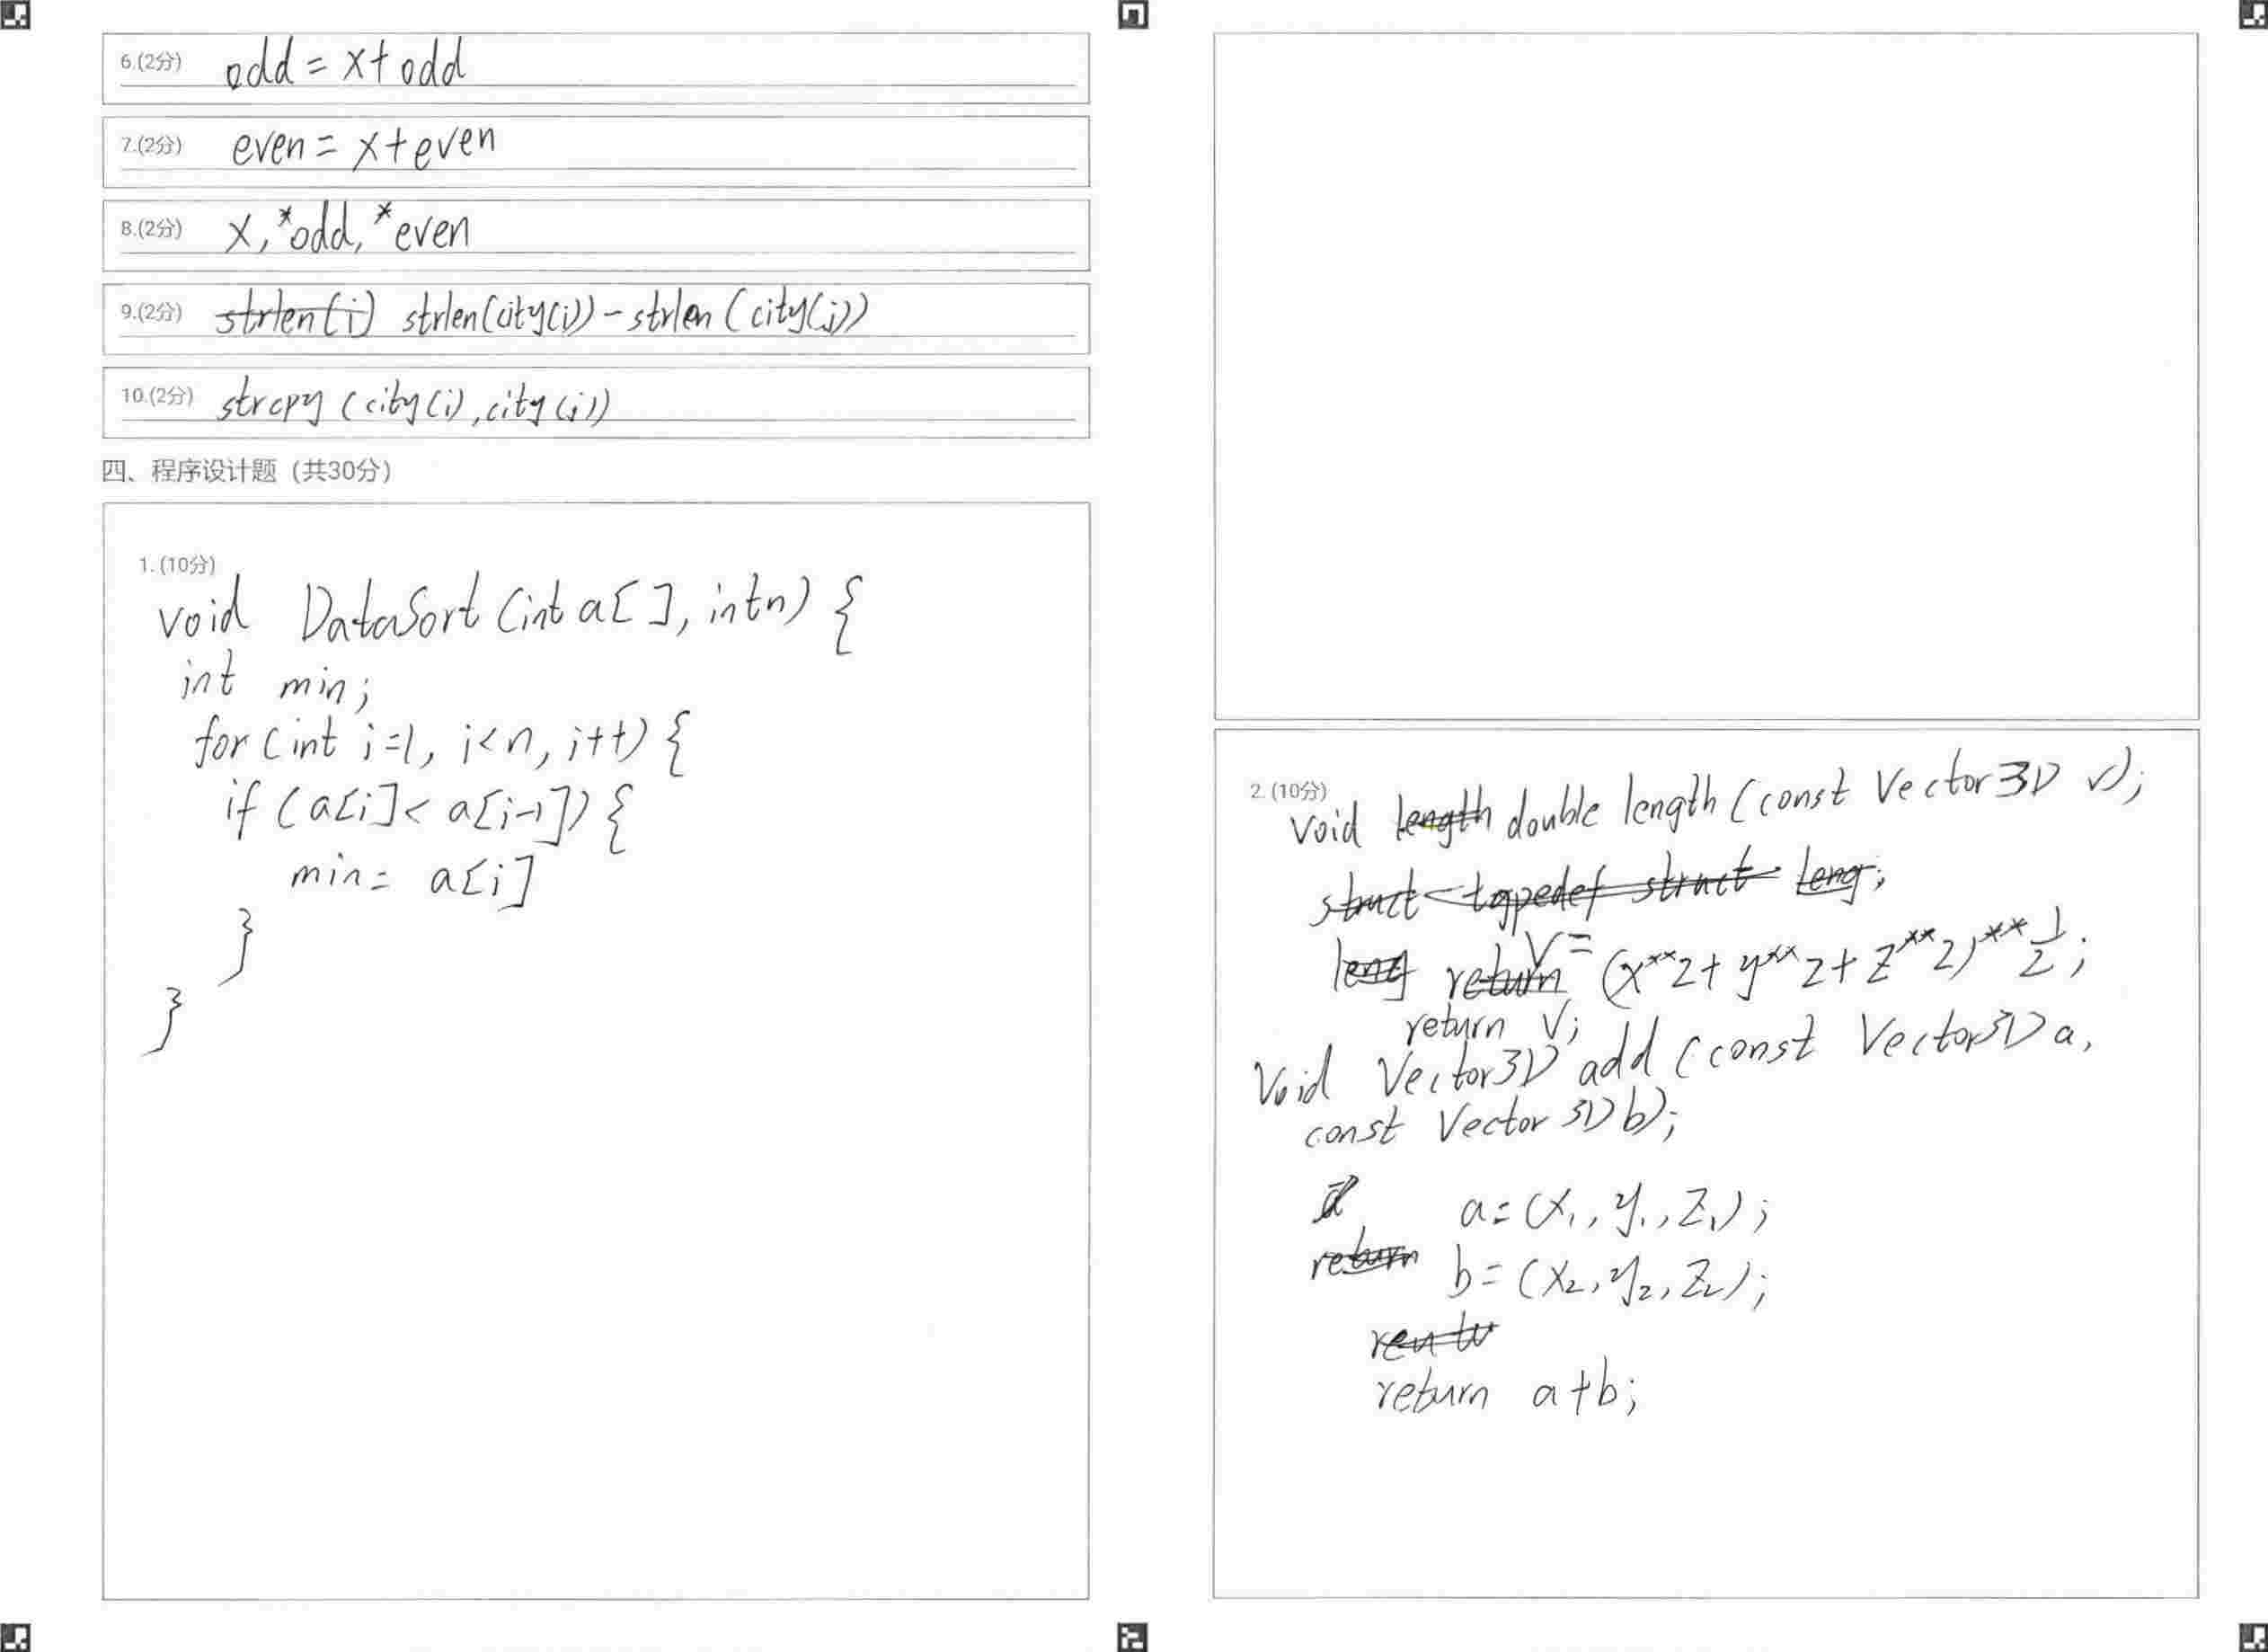 6.(2分) odd = x+odd
7.(2分) even = x+even
8.(2分) x,*odd,*even
9.(2分) strlen(i) strlen(city(i))-strlen(city(j))
10.(2分) strcpy(city(i),city(j))
四、程序设计题（共30分）
1.(10分)
void DataSort(int a[], int n) {
int min;
for(int i=1, i<n, i++) {
if (a[i]< a[i-1]) {
min= a[i]
}
}
2.(10分)
void length double length (const Vector3D v);
struct typedef struct leng;
leng return V= (x**2+y**2+z**2)**1/2;
return V;
Void Vector3D add (const Vector3D a,
const Vector3D b);
a=(x₁,y₁,z₁);
return b=(x₂,y₂,z₂);
return a+b;